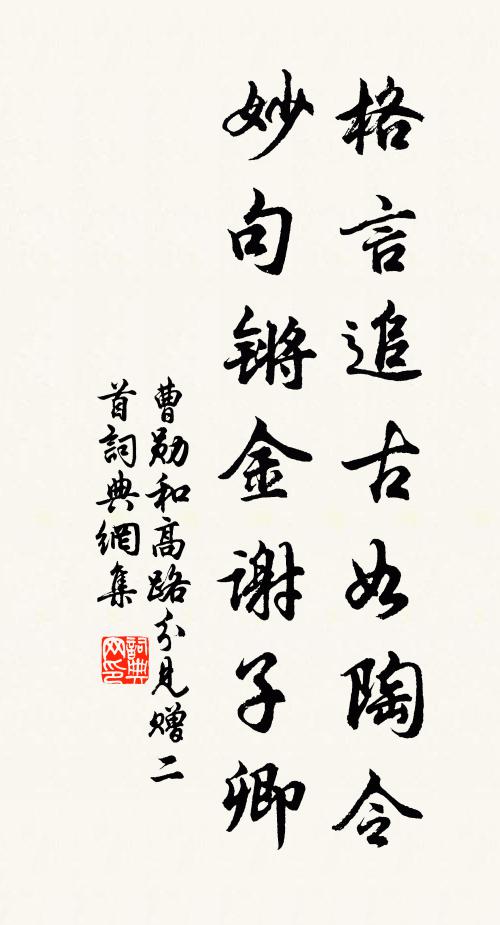 格言追古如陶令
妙句锵金谢子卿
曹勋和高路分見赠二
首詞典網集
詞典
网印